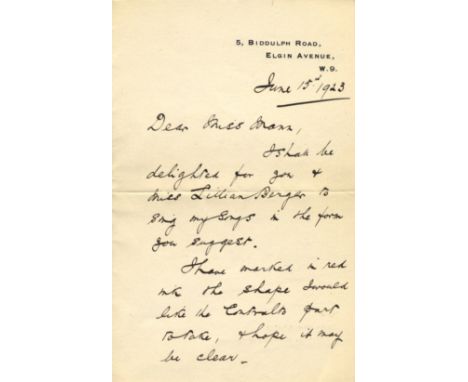 5, BIDDULPH ROAD,
ELGIN AVENUE,
W.9.
June 15th 1923
Dear Miss Mann,
I shall be
delighted for you &
Miss Lillian Berger to
sing my songs in the form
you suggest.
I have marked in red
ink the shape I would
like the Contralto part
to take, & hope it may
be clear.